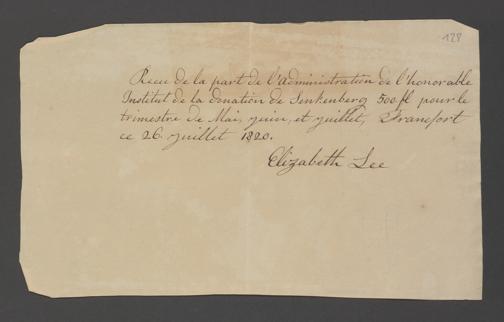 128
Recu de la part de l'administration de l'honorable
Institut de la donation de Senkenberg 500 fl pour le
trimestre de Mai, juin, et juillet, Francfort
ce 26 juillet 1820.
Elizabeth Lee